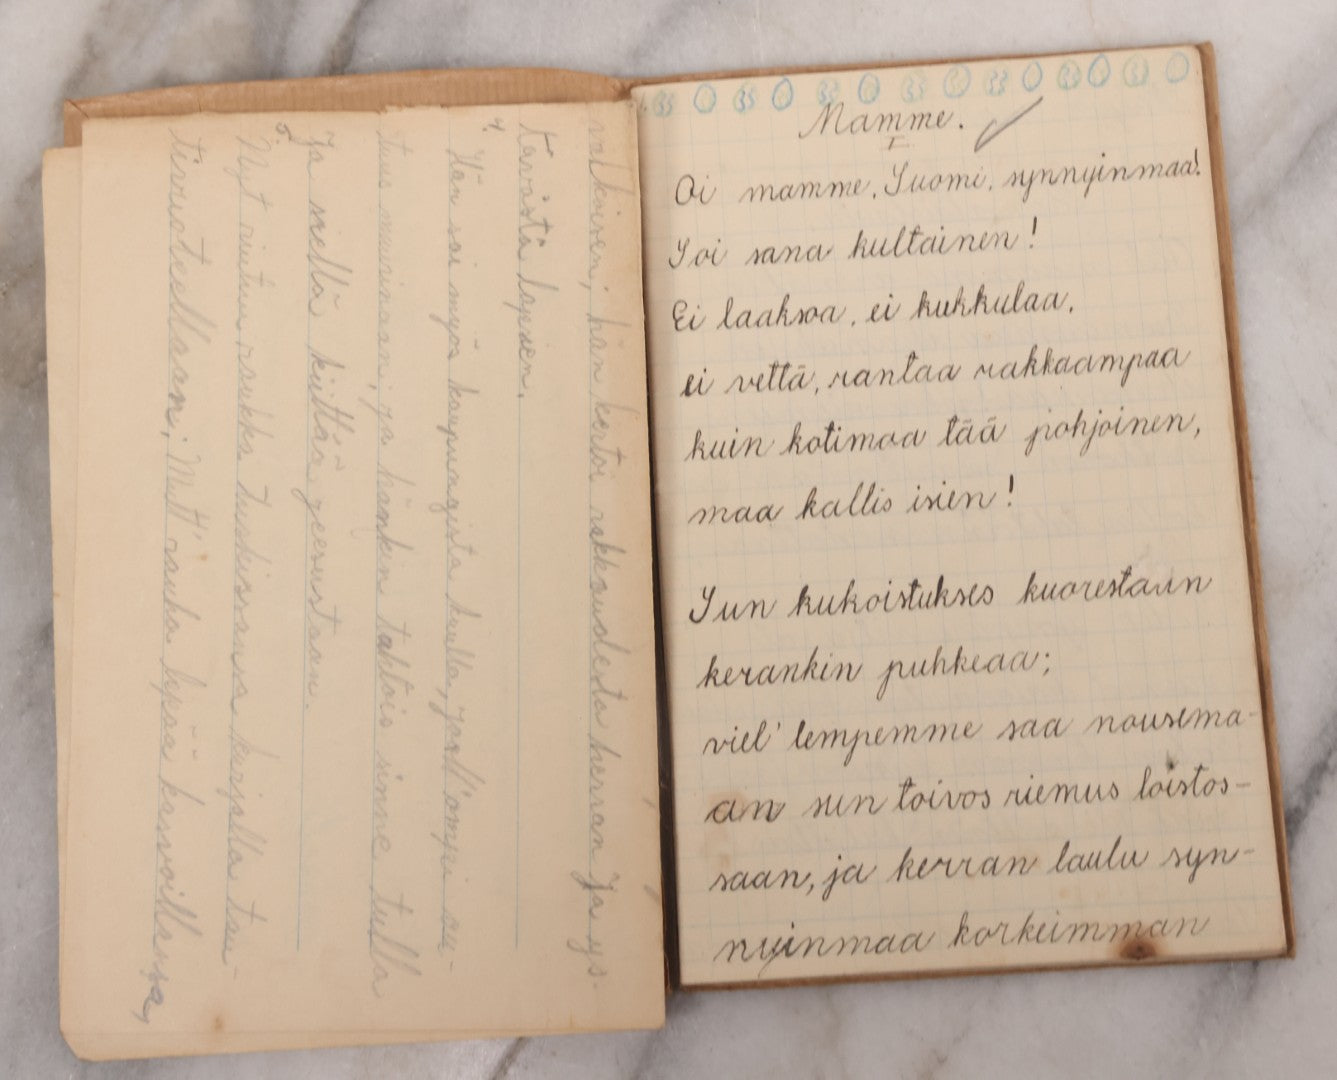 valkoisen; hän kertoi rakkaudesta herran Ja ys-
tävästä lapsien.
4.
Hän soi myös kaupungista kuulla, joss' ompi au-
tuus muuinaan, ja hänkin tahtois sinne tulla
Ja siellä kiittää jeesustaan.
5.
Nyt riutuu raukka tuskissansa kurjalla tau-
tivuoteellaan; Mutt' rauha lepää kasvoillansa,
Mamme.
I
Oi mamme, Suomi, synnyinmaa!
Soi sana kultainen!
Ei laaksoa, ei kukkulaa,
ei vettä, rantaa rakkaampaa
kuin kotimaa tää pohjoinen,
maa kallis isien!
Sun kukoistukses kuorestaan
kerankin puhkeaa;
viel' lempemme saa nousema-
an sun toivos riemus loistos-
saan, ja kerran laulu syn-
nyinmaa korkeimman